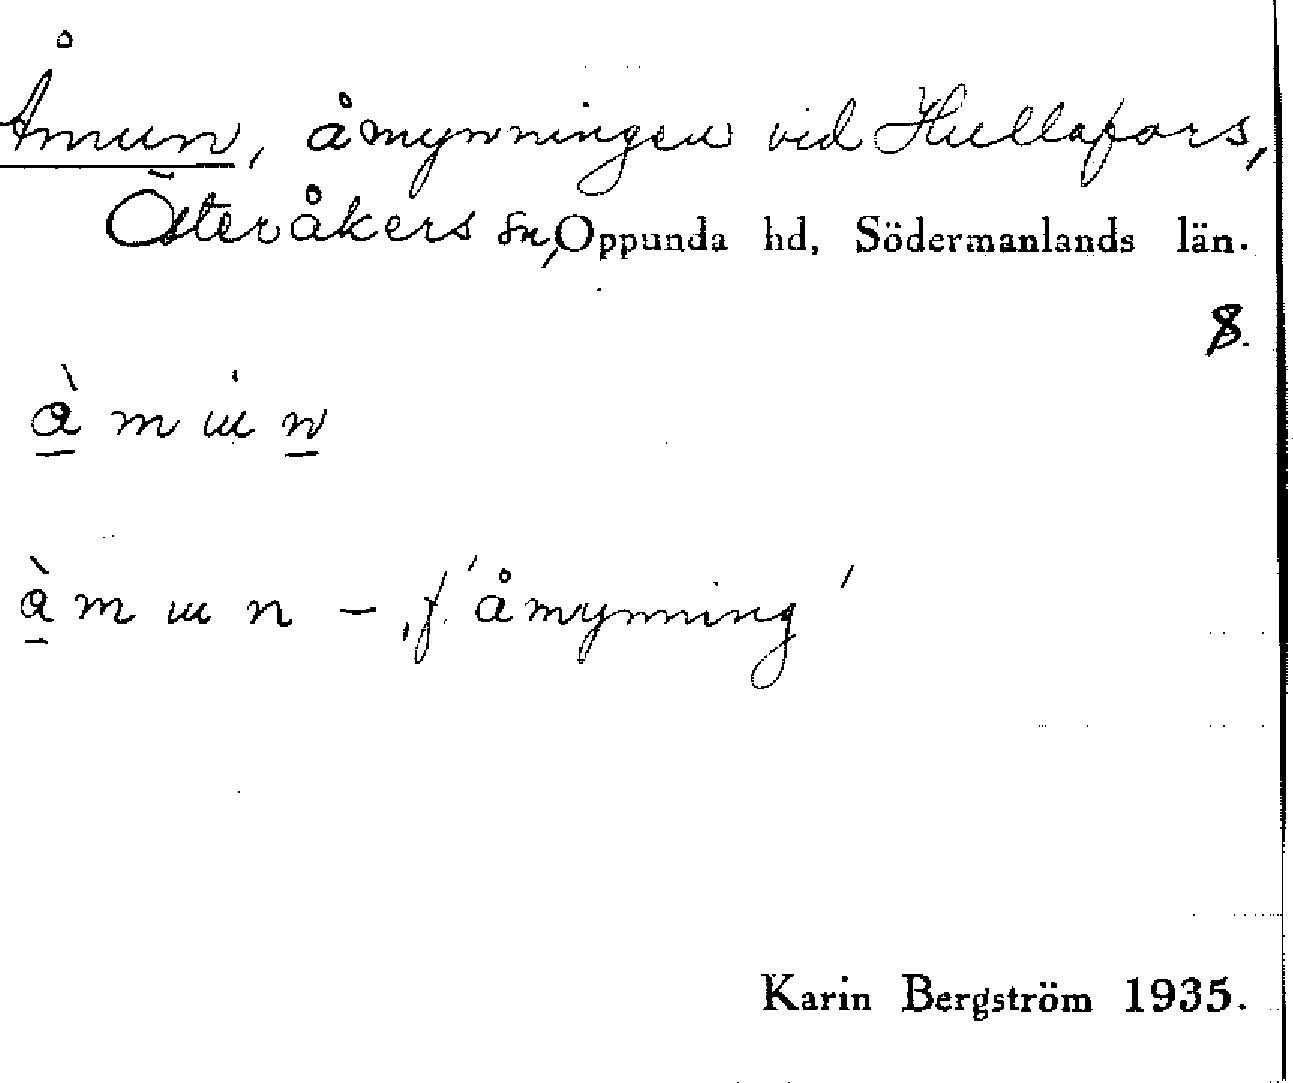 Åmun, åmynningen vid Hullafors,
Österåkers sn, Oppunda hd, Södermanlands län.
8.
à m ɯ n
à m ɯ n – , f. 'åmynning'
Karin Bergström 1935.